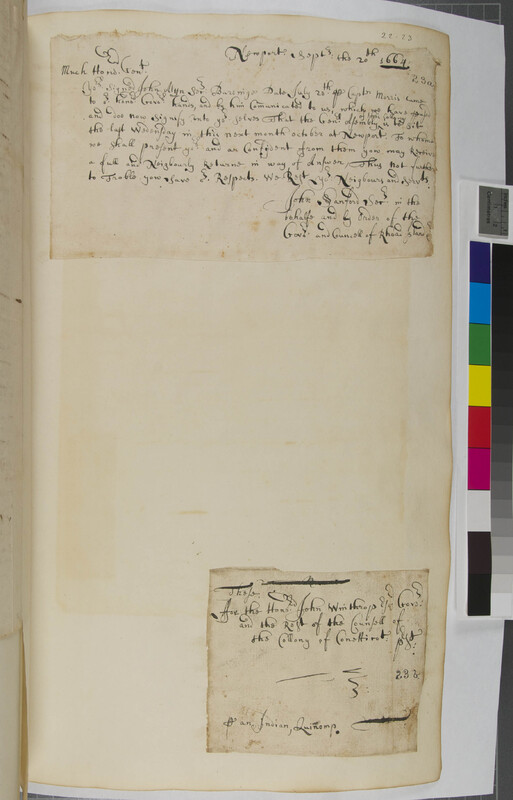 22-23
Newport Sept: the 20th 1664
23a
Much Honrd: Gent:
Yors: signd John Allyn Secr: Bareinge Date July 28th pr Captt: Morris came
to ye hands, and by him Comunicated to us, which we have
and doe now signify unto yor selves That the Genll Asembly is to sitt
the last Wedensday in this next month october at Newport. To whome
we shall present yors and are Confident from them you may Receive
a full and Neighbourly Returne in way of Answer. Thus not further
to Trable you, save yr Respects. We Rest yor Neighbours and
John Sanford Secr: in the
behalfe and by Order of the
Govr: and Councell of Rhode Island
These
ffor the Honrd John Winthrop Esqr Govr:
and the Rest of the Counsell of
the Collony of Conetticot:
23a
pr an Indian, Quinomp.